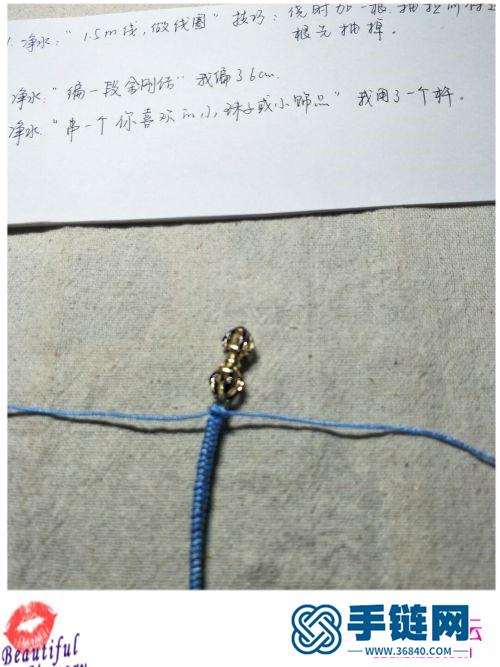 1. 净水："1.5m线，做线圈" 技巧：绕时加一根，抽拉
根先抽掉。
净水："编一段金刚结" 我编了6cm.
净水："串一个你喜欢的小珠子或小饰品" 我用了一个杵。
Beautiful
手链网
www.36840.com